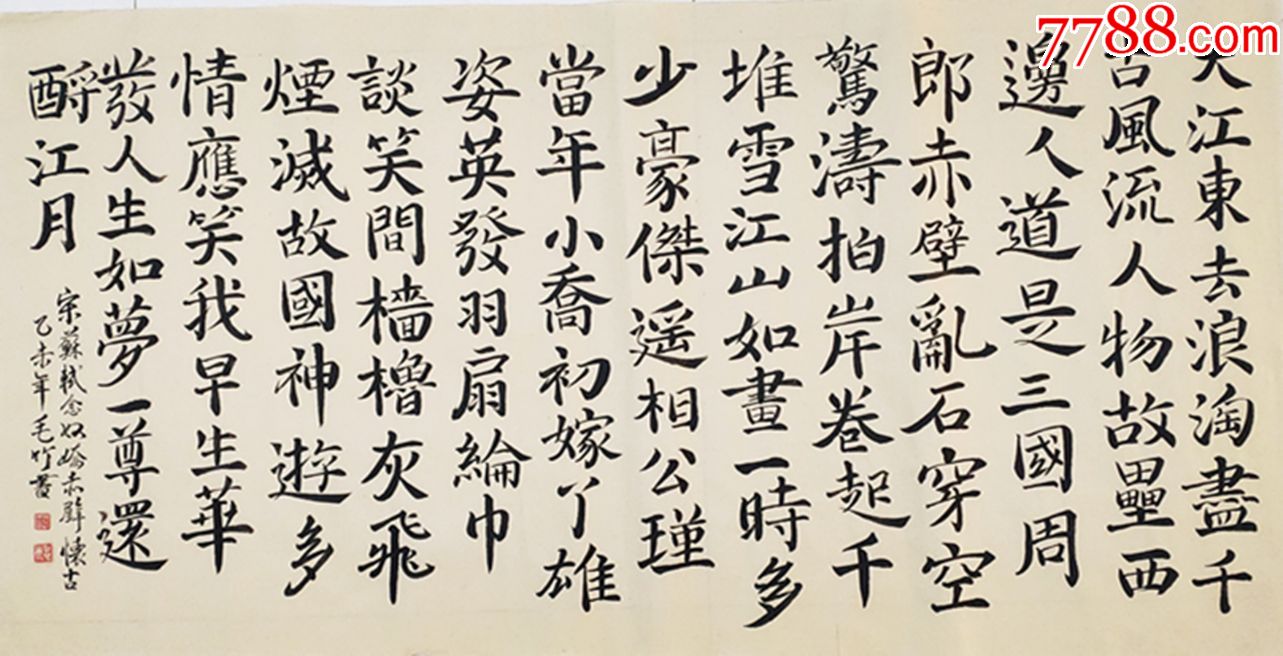 7788.com
大江東去浪淘盡千
古風流人物故壘西
邊人道是三國周
郎赤壁亂石穿空
驚濤拍岸卷起千
堆雪江山如畫一時多
少豪傑遥相公瑾
當年小喬初嫁丫雄
姿英發羽扇綸巾
談笑間檣櫓灰飛
煙滅故國神遊多
情應笑我早生華
發人生如夢一尊還
酹江月
宋蘇軾念奴嬌赤壁懷古
乙未年毛竹書